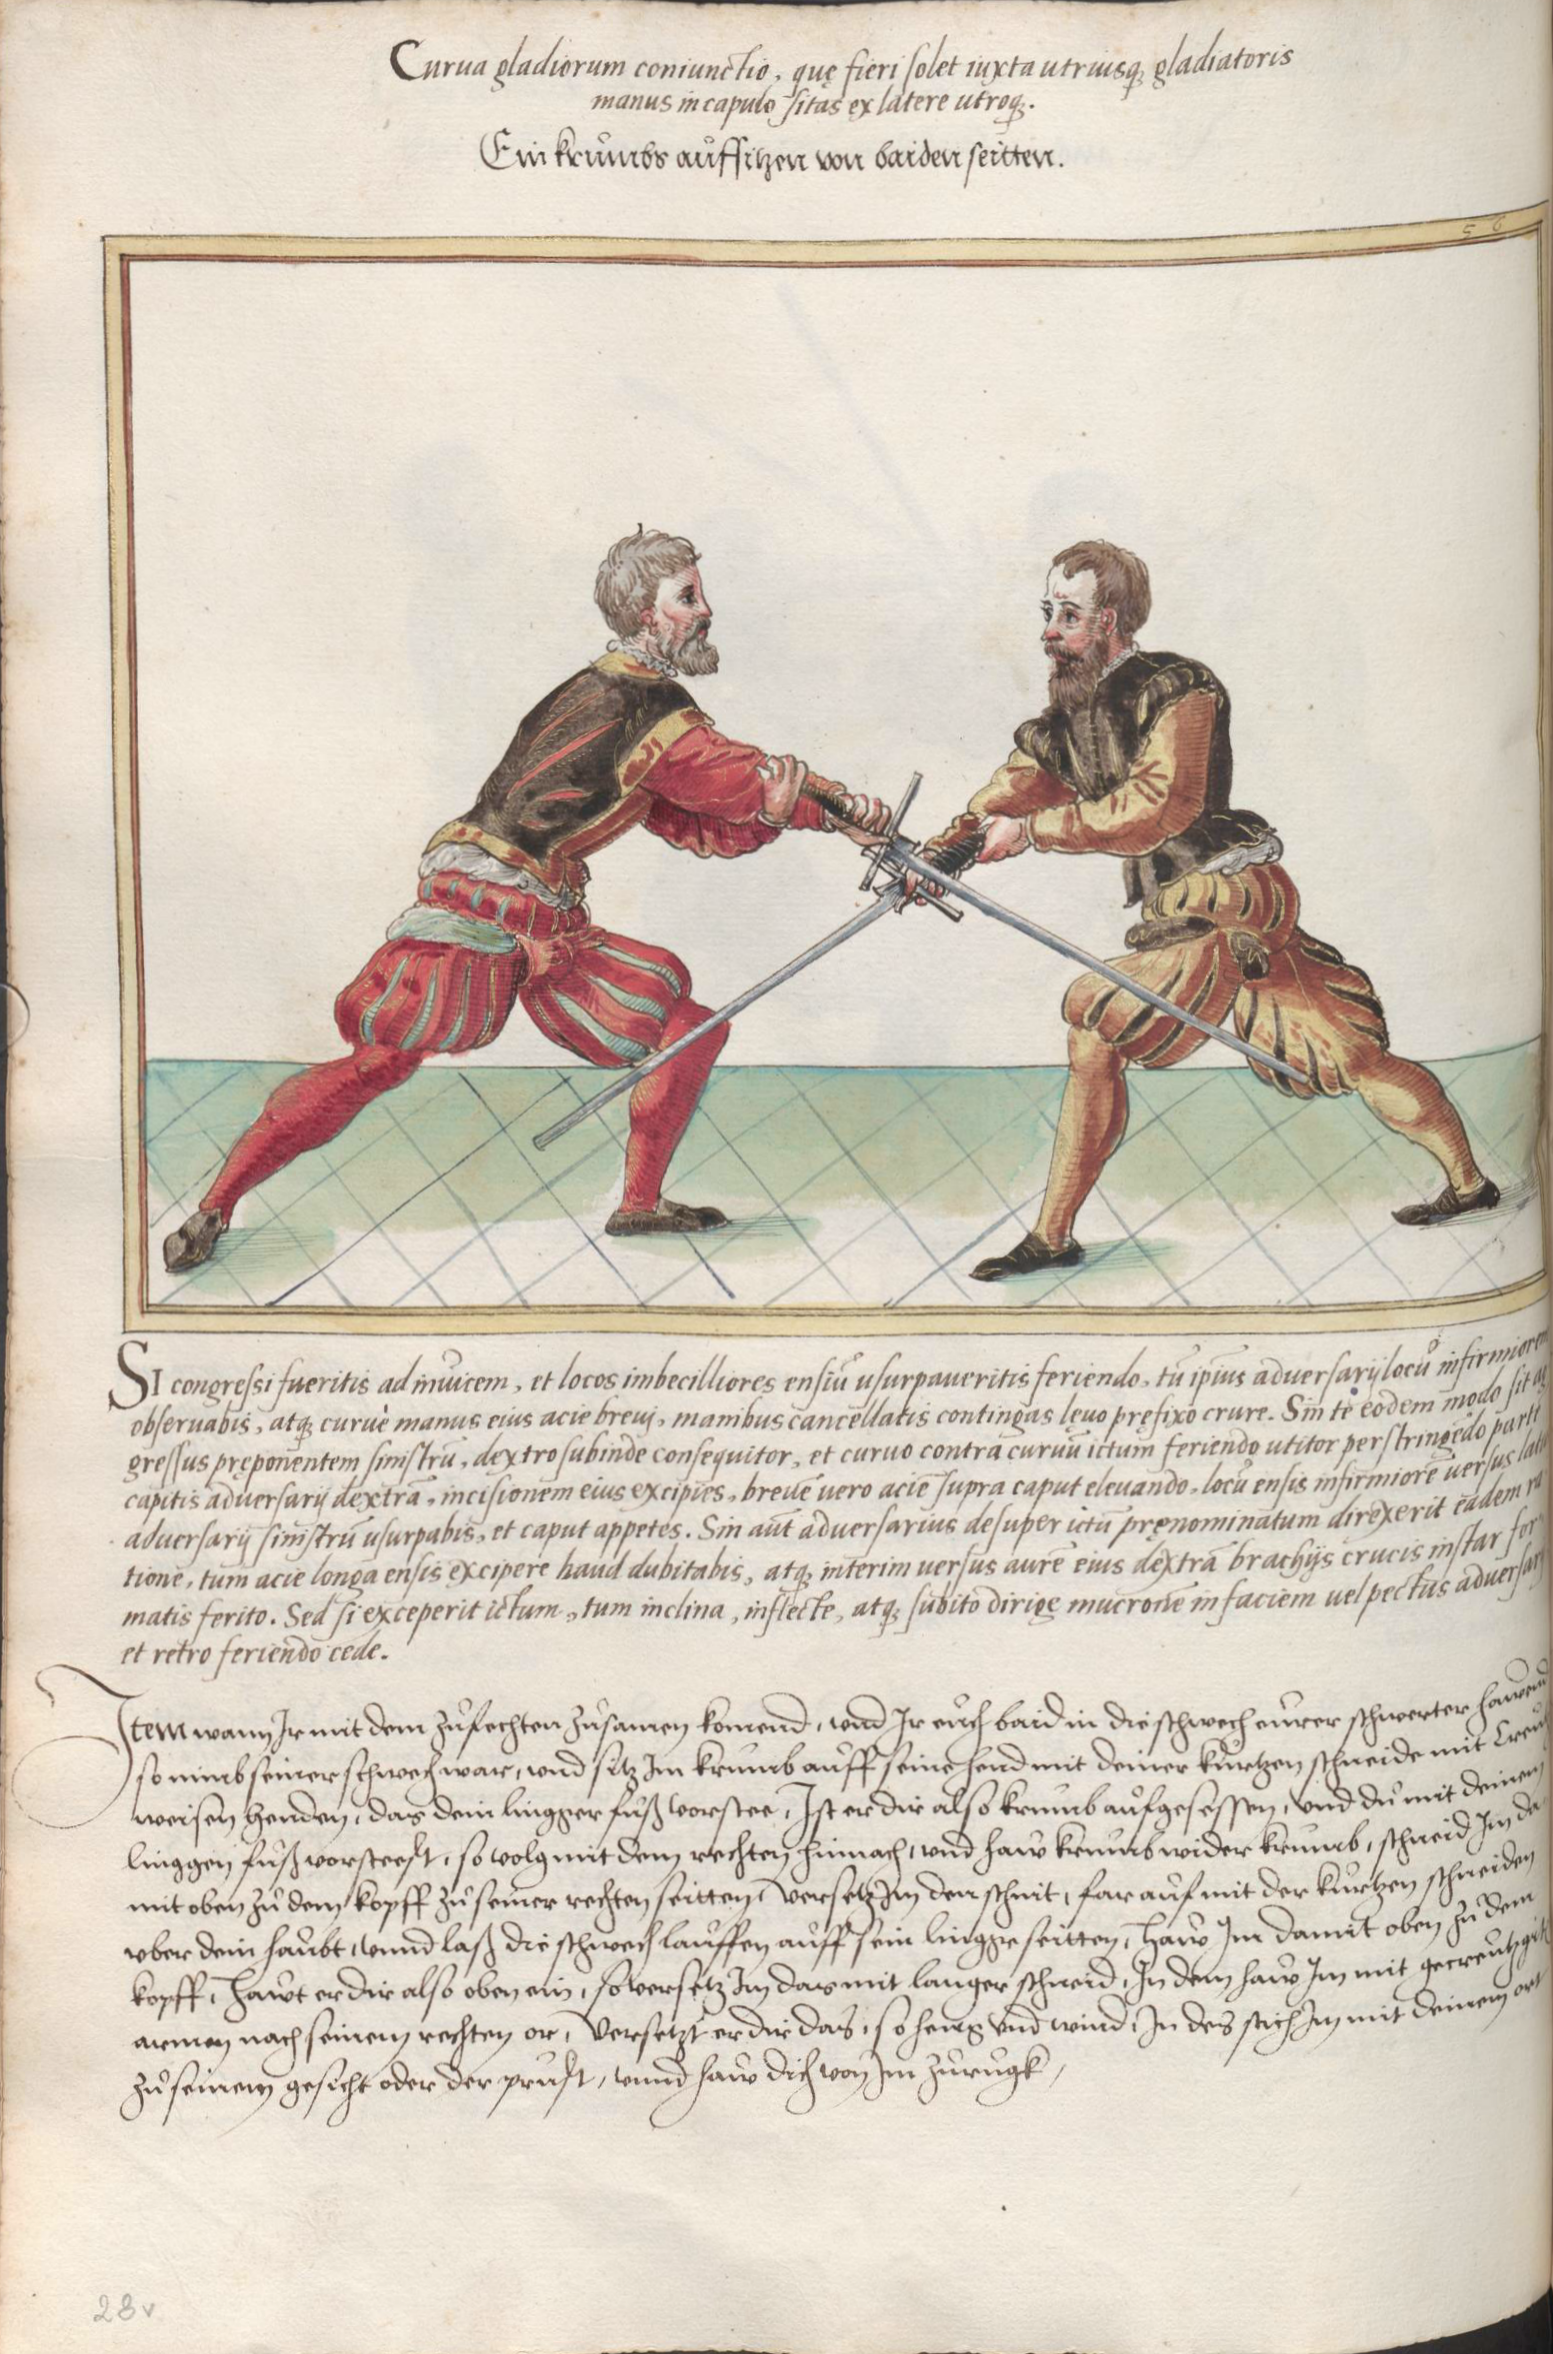 Curua gladiorum coniunctio, quę fieri solet iuxta utriusq; gladiatoris
manus in capulo sitas ex latere utroq;.
Ein krumbs auffsitzen von baiden seitten.
56
SI congressi fueritis ad inuicem, et locos imbecilliores ensiũ usurpaueritis feriendo, tũ ipsius adversarij locũ infirmiorem
obseruabis, atq; curuè manus eius acie breuj, manibus cancellatis contingas leuo pręfixo crure. Sin te eodem modo sit ag
gressus pręponentem sinistrũ, dextro subinde consequitor, et curuo contra curuũ ictum feriendo utitor perstringẽdo parte
capitis adversarij dextrã, incisionem eius excipies, breuẽ uero aciẽ supra caput eleuando, locũ ensis infirmiorẽ uersus latus
adversarij sinistrũ usurpabis, et caput appetes. Sin aũt adversarius desuper ictũ pręnominatum direxerit eadem ra
tione, tum acie longa ensis excipere haud dubitabis, atq; interim uersus aurẽ eius dextrã brachijs crucis instar for
matis ferito. Sed si exceperit ictum, tum inclina, inflecte, atq; subito dirige mucronẽ in faciem uel pectus adversarij
et retro feriendo cede.
Item wann Ir mit dem zufechten zusamen komend, und Ir euch baid in die schwech eurer schwerter hawend
so nimb seiner schwech war, und sitz Im krumb auff seine hend mit deiner kurtzen schneide mit Creutz
weisen henden, das dein lingger fuß vorstee, Ist er dir also krumb aufgesessen, und du mit deinem
linggen fuß vorsteest, so volg mit dem rechten hinnach, und haw krumb wider krumb, schneid Im da
mit oben zu dem kopff zu seiner rechten seitten, Versetz Im den schnit, far auf mit der kurtzen schneiden
uber dein haubt, unnd laß die schwech lauffen auff sein lingge seitten, Haw Im damit oben zu dem
kopff, Hawt er dir also oben ein, so versetz Im das mit langer schneid, In dem haw Im mit gecreutzgten
armen nach seinem rechten or, Versetzt er dir das, so heng und wind, In des stich Im mit deinem ort
zu seinem gesicht oder der prust, unnd haw dich von Im zurugk,
28v